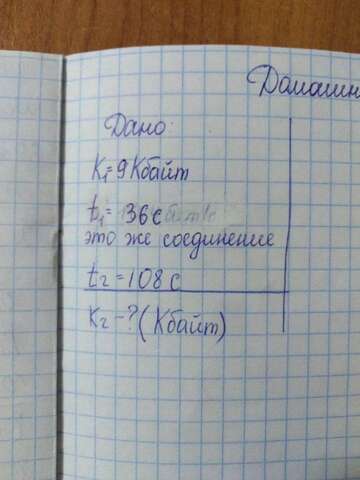 Домашн
Дано:
K₁=9 Кбайт
t₁= 36 с
это же соединение
t₂=108 с
K₂-? (Кбайт)